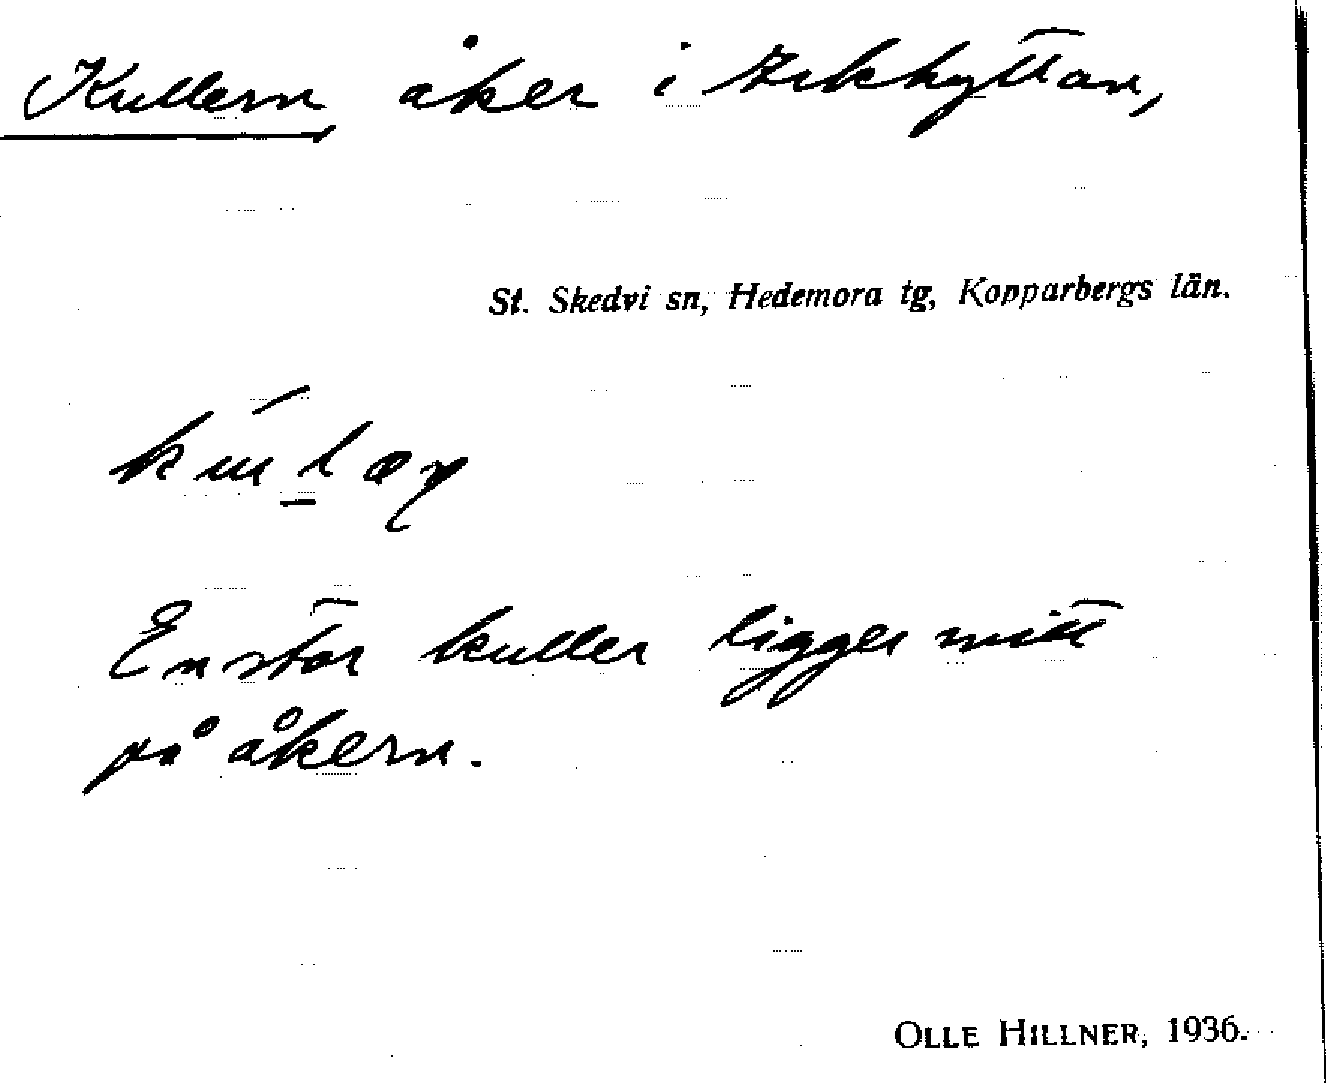 Kullern åker i
St. Skedvi sn, Hedemora tg, Kopparbergs län.
En stor kuller ligger mitt
på åkern.
OLLE HILLNER, 1936.